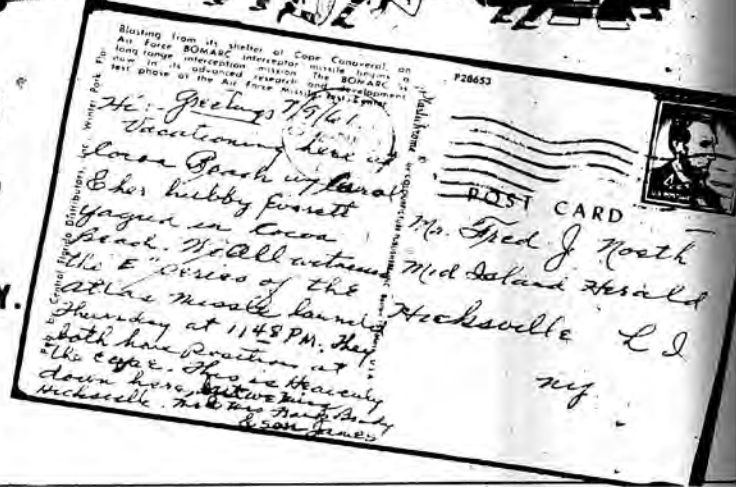 Blasting from its shelter at Cape Canaveral, an
Air Force BOMARC interceptor missile begins a
long range interception mission. The BOMARC is
now in its advanced research and development
test phase at the Air Force Missile Test Center
Hi:- Greetings 7/9/61.
Vacationing here at
Cocoa Beach w/ Carol
& her hubby Everett
in Cocoa
Beach. We All witness
the "E" series of the
atlas missle launch
Thursday at 11:48 PM. They
both have Position at
the cape. This is Heavenly
down here, but we miss
Hicksville. Mr & Mrs Frank
& son James
by Central Florida Distributors, Inc. Winter Park, Fla.
P28653
POST CARD
4¢
Mr. Fred J. Noeth
Mid Island Herald
Hicksville L I
ny.
Y.